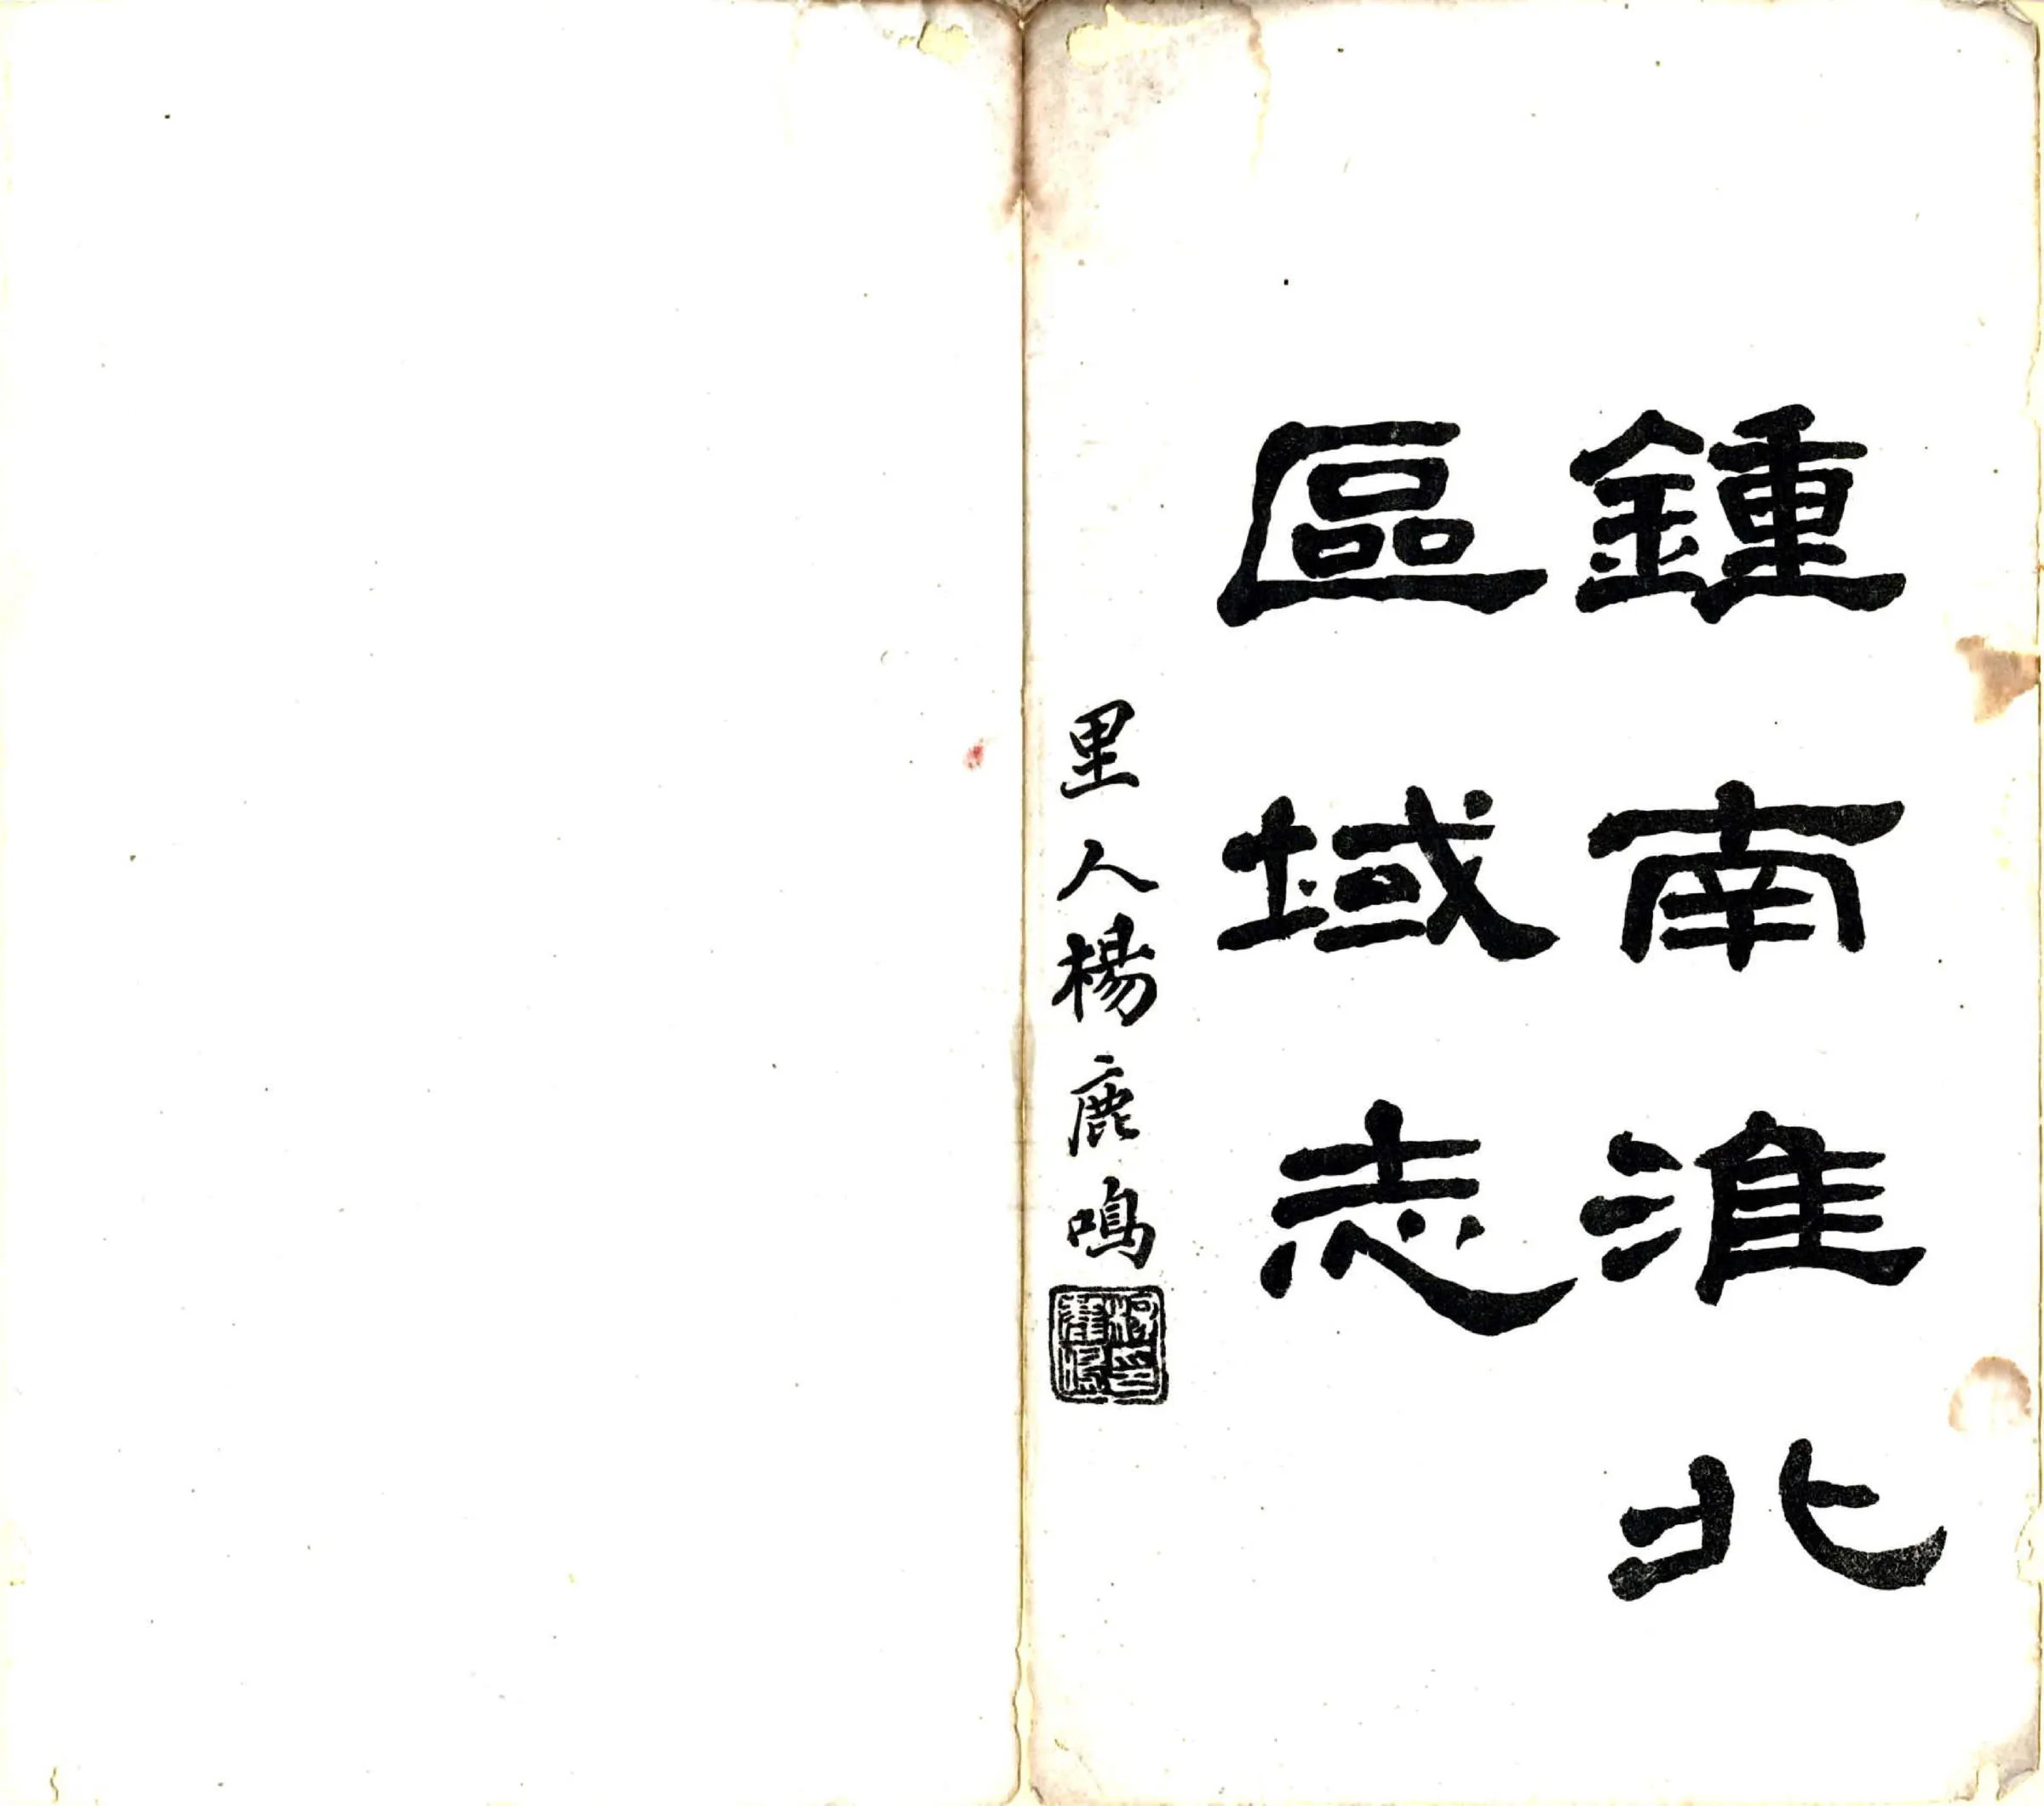 鍾南淮北
區域志
里人楊鹿鳴